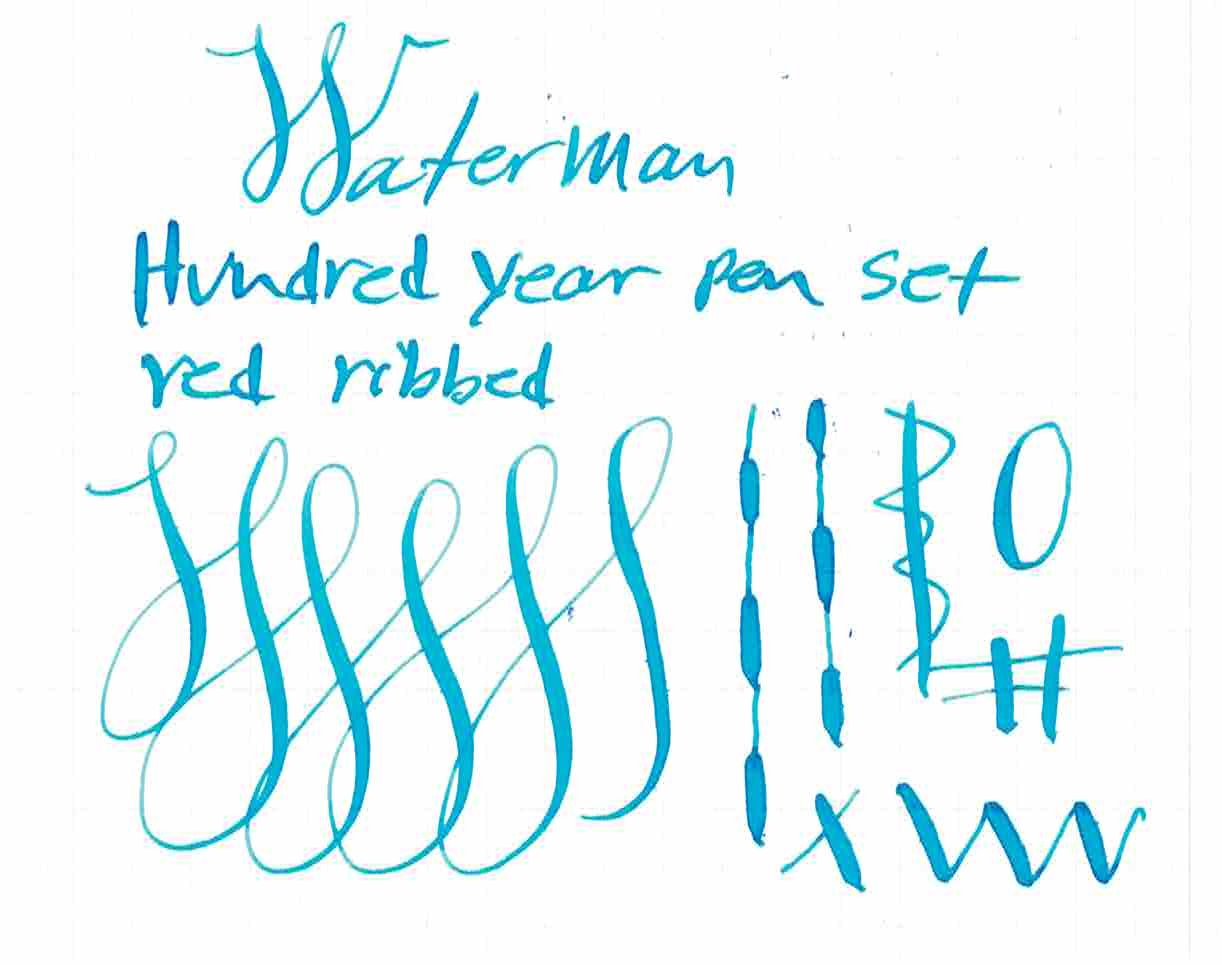 Waterman
Hundred year pen set
red ribbed